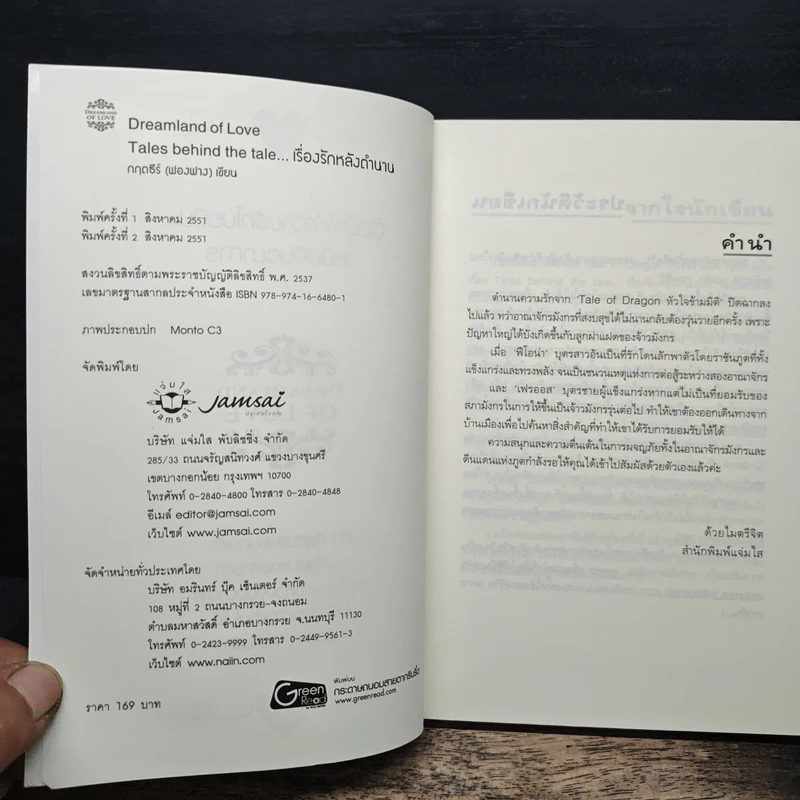 DREAMLAND
OF LOVE
Dreamland of Love
Tales behind the tale... เรื่องรักหลังตำนาน
กฤตธีร์ (ฟองฟาง) เขียน
พิมพ์ครั้งที่ 1 สิงหาคม 2551
พิมพ์ครั้งที่ 2 สิงหาคม 2551
สงวนลิขสิทธิ์ตามพระราชบัญญัติลิขสิทธิ์ พ.ศ. 2537
เลขมาตรฐานสากลประจำหนังสือ ISBN 978-974-16-6480-1
ภาพประกอบปก Monto C3
จัดพิมพ์โดย
แจ่มใส
Jamsai
Jamsai
บริษัท แจ่มใส พับลิชชิ่ง จำกัด
285/33 ถนนจรัญสนิทวงศ์ แขวงบางขุนศรี
เขตบางกอกน้อย กรุงเทพฯ 10700
โทรศัพท์ 0-2840-4800 โทรสาร 0-2840-4848
อีเมล์ editor@jamsai.com
เว็บไซต์ www.jamsai.com
จัดจำหน่ายทั่วประเทศโดย
บริษัท อมรินทร์ บุ๊ค เซ็นเตอร์ จำกัด
108 หมู่ที่ 2 ถนนบางกรวย-จงถนอม
ตำบลมหาสวัสดิ์ อำเภอบางกรวย จ.นนทบุรี 11130
โทรศัพท์ 0-2423-9999 โทรสาร 0-2449-9561-3
เว็บไซต์ www.naiin.com
Green
Read
พิมพ์บน
กระดาษถนอมสายตากรีนรี้ด
www.greenread.com
ราคา 169 บาท
คำนำ
ตำนานความรักจาก 'Tale of Dragon หัวใจข้ามมิติ' ปิดฉากลง
ไปแล้ว ทว่าอาณาจักรมังกรที่สงบสุขได้ไม่นานกลับต้องวุ่นวายอีกครั้ง เพราะ
ปัญหาใหญ่ได้บังเกิดขึ้นกับลูกฝาแฝดของจ้าวมังกร
เมื่อ 'ฟีโอน่า' บุตรสาวอันเป็นที่รักโดนลักพาตัวโดยราชันภูตที่ทั้ง
แข็งแกร่งและทรงพลัง จนเป็นชนวนเหตุแห่งการต่อสู้ระหว่างสองอาณาจักร
และ 'เฟรออส' บุตรชายผู้แข็งแกร่งหากแต่ไม่เป็นที่ยอมรับของ
สภามังกรในการให้ขึ้นเป็นจ้าวมังกรรุ่นต่อไป ทำให้เขาต้องออกเดินทางจาก
บ้านเมืองเพื่อไปค้นหาสิ่งสำคัญที่ทำให้เขาได้รับการยอมรับให้ได้
ความสนุกและความตื่นเต้นในการผจญภัยทั้งในอาณาจักรมังกรและ
ดินแดนแห่งภูตกำลังรอให้คุณได้เข้าไปสัมผัสด้วยตัวเองแล้วค่ะ
ด้วยไมตรีจิต
สำนักพิมพ์แจ่มใส